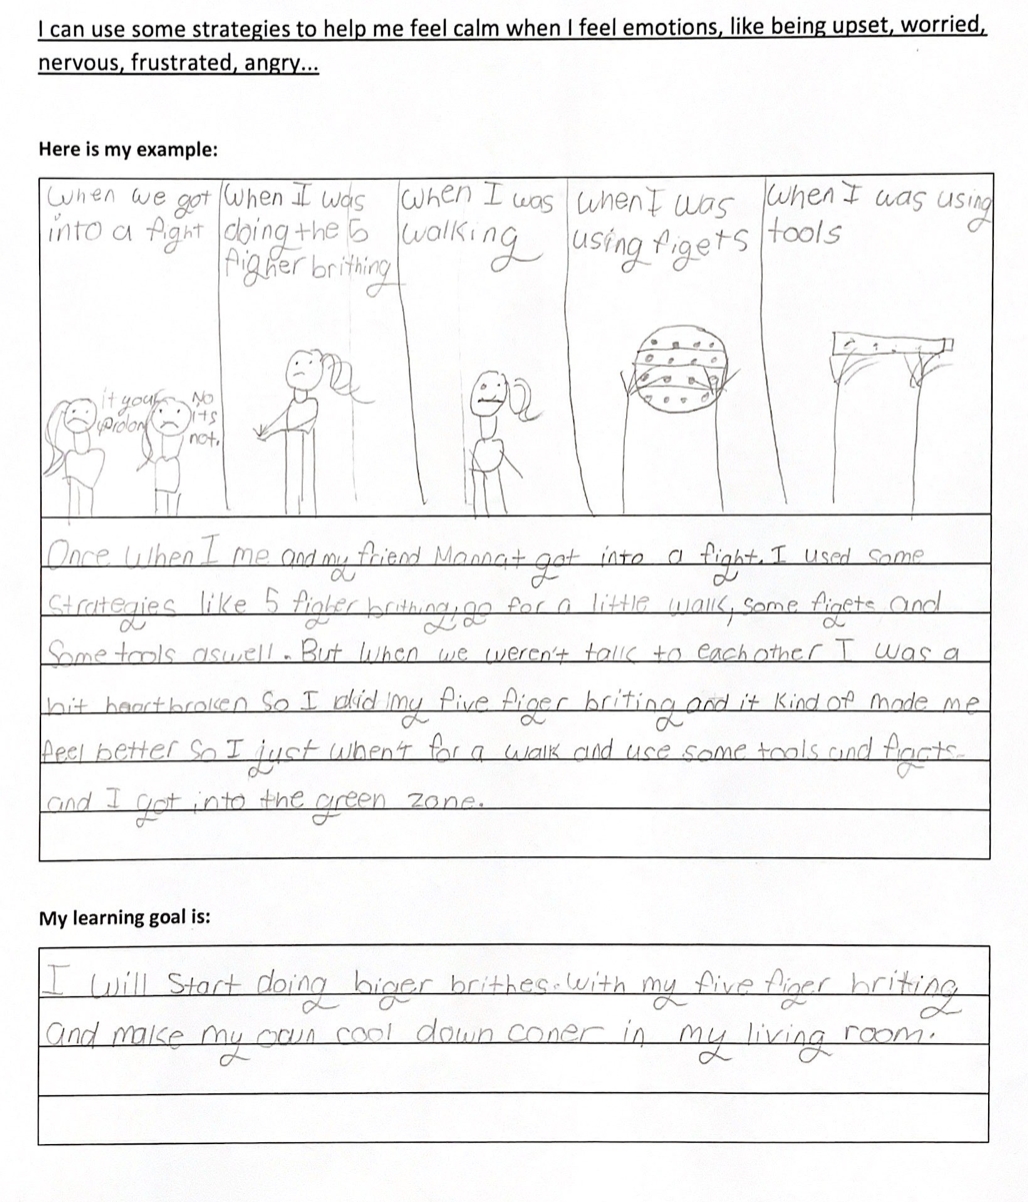 I can use some strategies to help me feel calm when I feel emotions, like being upset, worried,
nervous, frustrated, angry...
Here is my example:
When we got
into a fight
it your
No
its
not.
When I was
doing the 5
figher brithing
When I was
walking
when I was
using figets
When I was using
tools
Once When I me and my friend Mannat got into a fight. I used some
Strategies like 5 figher brithing, go for a little walk, some figets and
Some tools aswell. But when we weren't talk to eachother I was a
bit heartbroken So I did my five figer briting and it kind of made me
feel better So I just when't for a walk and use some tools and figets.
and I got into the green zone.
My learning goal is:
I will Start doing biger brithes. with my five figer briting
and make my own cool down coner in my living room.